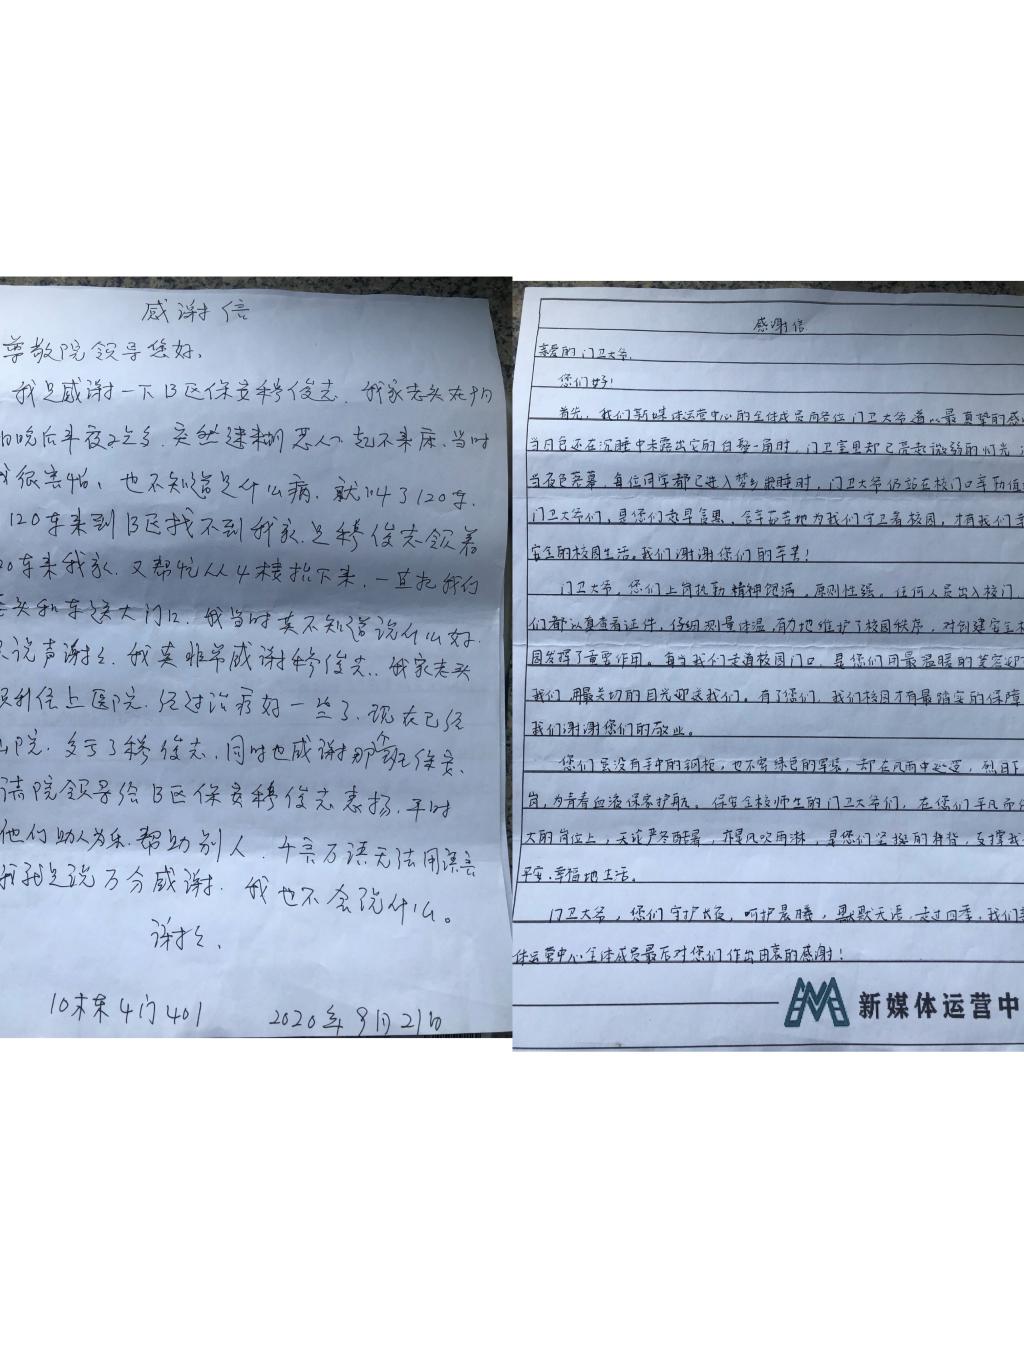 感谢信
尊敬院领导您好.
我是感谢一下B区保安穆俊志.我家老头在9月
晚后半夜2点多.突然迷糊 起不来床.当时
我很害怕.也不知道是什么病.就叫了120车.
120车来到B区找不到我家.是穆俊志领着
20车来我家.又帮忙从4楼抬下来.一直把我们
老头和车送大门口.我当时真不知道说什么好.
说声谢谢.我真非常感谢穆俊志.我家老头
顺利住上医院.经过治疗好一些了.现在已经
出院.多亏了穆俊志.同时也感谢那个班保安.
请院领导给B区保安穆俊志表扬.平时
他们助人为乐.帮助别人.千言万语无法用语言
我就是说万分感谢.我也不会说什么。
谢谢.
10栋4门401
2020年9月21日
感谢信
亲爱的门卫大爷.
您们好!
首先,我们新媒体运营中心的全体成员向各位门卫大爷道以最真挚的感
当月色还在沉睡中未露出它的白 一角时,门卫室里却已亮起微弱的灯光,
当夜色落幕,每位同学都已进入梦乡 睡时,门卫大爷仍站在校门口辛勤值
门卫大爷们,是您们起早贪黑、含辛茹苦地为我们守卫着校园,才有我们
安全的校园生活。我们谢谢您们的辛苦!
门卫大爷,您们上岗执勤精神饱满,原则性强。任何人员出入校门,
们都认真查看证件,仔细测量体温,有力地维护了校园秩序,对创建安全校
园发挥了重要作用。每当我们走进校园门口,是您们用最温暖的笑容迎
我们,用最关切的目光迎送我们。有了您们,我们校园才有最踏实的保障
我们谢谢您们的敬业。
您们虽没有手中的钢枪,也不穿绿色的军装,却在风雨中 ,烈日下
岗,为青春血液保驾护航。保安全校师生的门卫大爷们,在您们平凡而
大的岗位上,无论严冬酷暑,亦是风吹雨淋,是您们坚挺的脊背,支撑我
平安、幸福地生活。
门卫大爷,您们守护长夜,呵护晨曦,默默无语,走过四季,我们
体运营中心全体成员最后对您们作出由衷的感谢!
新媒体运营中